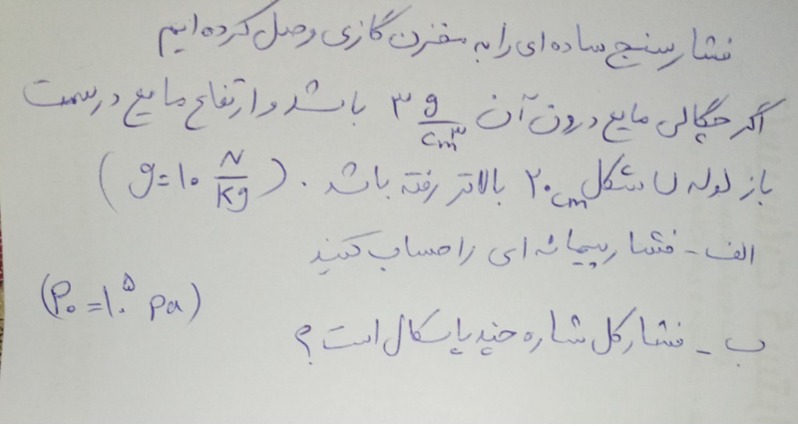 فشارسنج ساده ای را به مخزن گازی وصل کرده ایم
اگر چگالی مایع درون آن ۳ g/cm³ باشد و ارتفاع مایع در سمت
باز لوله U شکل ۲۰cm بالاتر رفته باشد . (g=۱۰ N/Kg)
الف - فشار پیمانه ای را حساب کنید
(P₀=۱۰⁵ pa)
ب - فشار کل شاره چند پاسکال است ؟